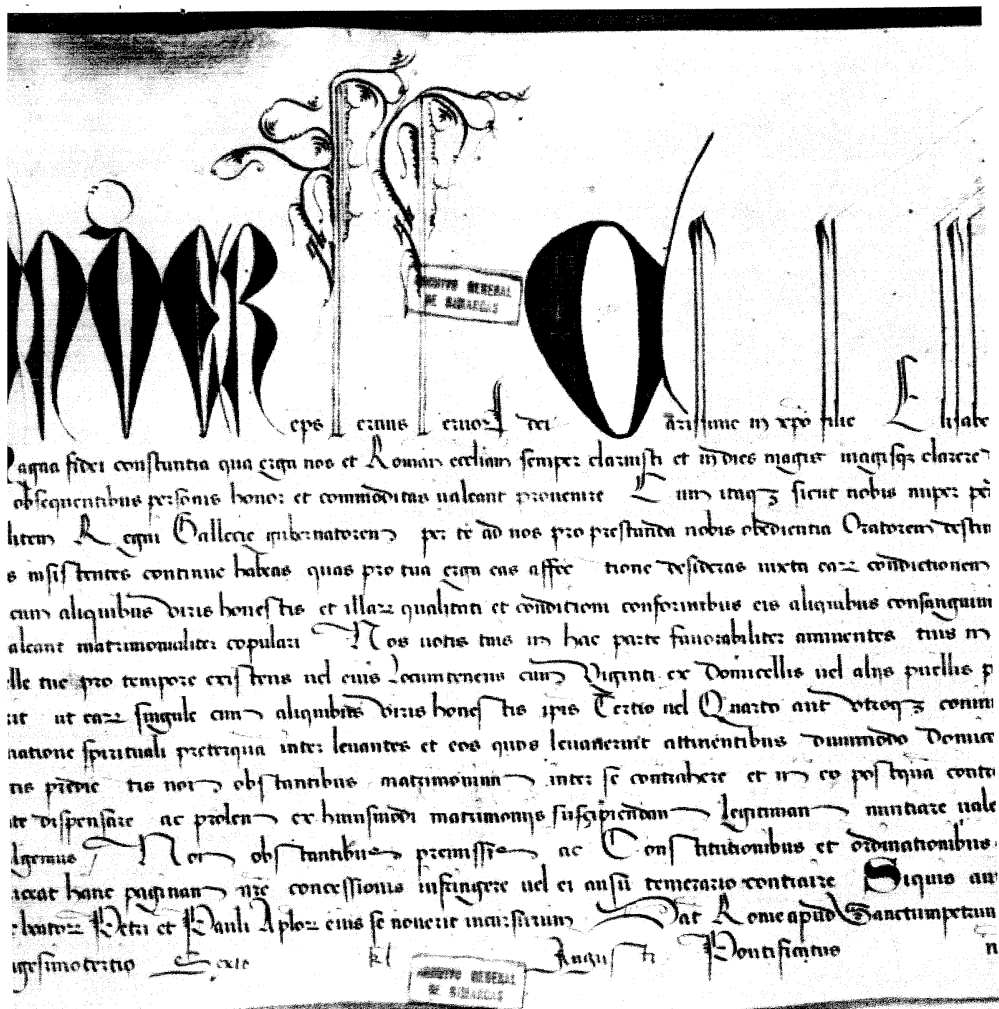 ARCHIVO GENERAL
DE SIMANCAS
eps seruus seruor dei arissime in xpo filie Elisabe
agna fidei constantia qua erga nos et Roman eccliam semper claruisti et in dies magis magisq clarere
obsequentibus personis honor et commoditas ualeant prouenire Cum itaqz sicut nobis nuper
litem Regni Gallecie gubernatorem per te ad nos pro prestanda nobis obedientia Oratorem destin
s insistentes continue habeas quas pro tua erga eas affec tione desideras iuxta earz condictionem
cum aliquibus viris honestis et illarz qualitati et conditioni conformibus eis aliquibus consanguini
aleant matrimonialiter copulari Nos uotis tuis in hac parte fauorabiliter annuentes tuis
lle tue pro tempore existens uel eius Locumtenens cum Viginti ex Domicellis uel aliis puellis p
ut earz singule cum aliquibus viris honestis ipis Tertio uel Quarto aut vtroqz
natione spirituali preterqua inter leuantes et eos quos leuauerint attinentibus dummodo Domice
tis predic tis non obstantibus matrimonium inter se contrahere et in eo postqua contr
te dispensare ac prolem ex huiusmodi matrimoniis suscipiendam legitimam nuntiare uale
lgemus Non obstantibus premissis ac Constitutionibus et ordinationibus
iceat hanc paginam nre concessionis infringere uel ei ausu temerario contraire Siquis
beatorz Petri et Pauli Aplorz eius se nouerit incursurum Dat Rome apud Sanctumpetrum
igesimotertio Sexto kl Augusti Pontificatus n
ARCHIVO GENERAL
DE SIMANCAS